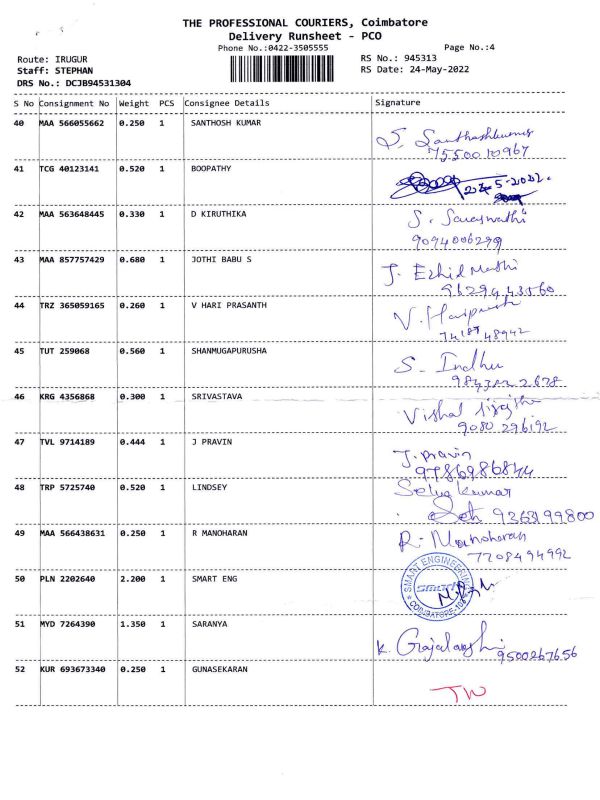 THE PROFESSIONAL COURIERS, Coimbatore
Delivery Runsheet - PCO
Phone No.:0422-3505555
Page No.:4
Route: IRUGUR
RS No.: 945313
Staff: STEPHAN
RS Date: 24-May-2022
DRS No.: DCJB94531304
S No Consignment No Weight PCS Consignee Details Signature
40 MAA 566055662 0.250 1 SANTHOSH KUMAR
S. Santhoshkumar
7550010967
41 TCG 40123141 0.520 1 BOOPATHY
24-5-2022.
42 MAA 563648445 0.330 1 D KIRUTHIKA S. Saraswathi
9094006299
43 MAA 857757429 0.680 1 JOTHI BABU S
J. Ezhil Mathi
9629443560
44 TRZ 365059165 0.260 1 V HARI PRASANTH
V.
7418748942
45 TUT 259068 0.560 1 SHANMUGAPURUSHA
S. Indhu
2678
46 KRG 4356868 0.300 1 SRIVASTAVA
Vishal
9080296192
47 TVL 9714189 0.444 1 J PRAVIN
J. Pravin
9786986844
48 TRP 5725740 0.520 1 LINDSEY
Selva Kumar
9363199800
49 MAA 566438631 0.250 1 R MANOHARAN R. Manoharan
7708494992
50 PLN 2202640 2.200 1 SMART ENG
SMART ENGINEERING
SMART
COIMBATORE
51 MYD 7264390 1.350 1 SARANYA
K.
9500267656
52 KUR 693673340 0.250 1 GUNASEKARAN